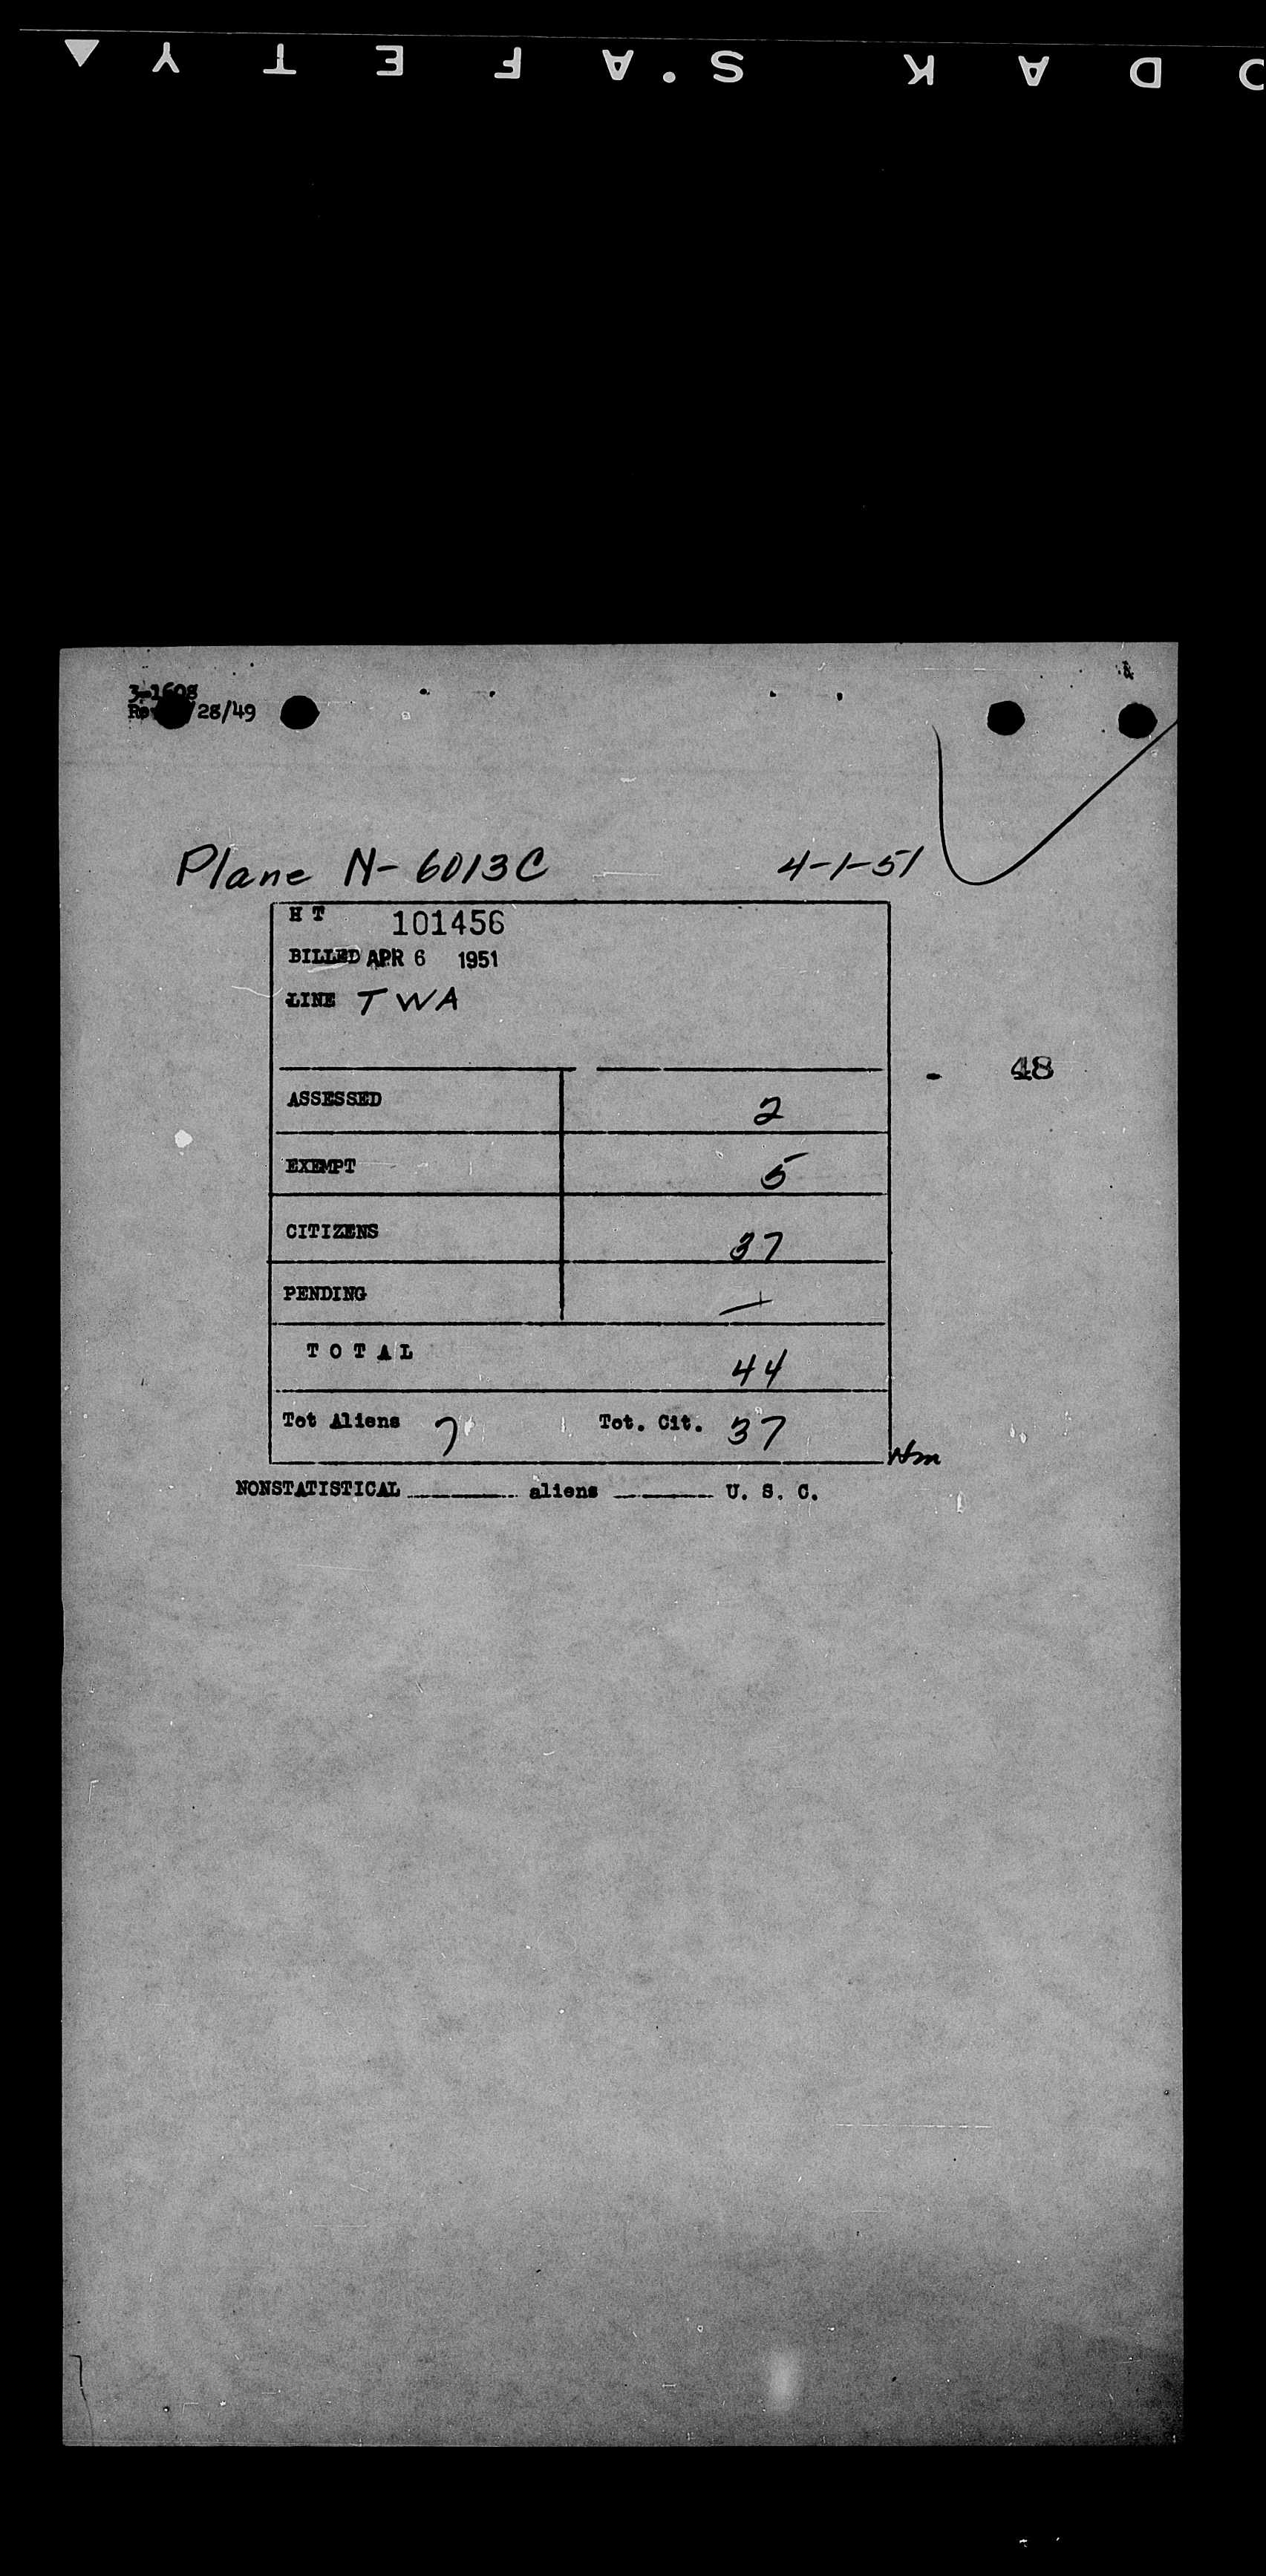 KODAK S'AFETY
3-1608
Rev 28/49
Plane N-6013C 4-1-51
HT 101456
BILLED APR 6 1951
LINE TWA
- 48
ASSESSED 2
EXEMPT 5
CITIZENS 37
PENDING —
TOTAL 44
Tot Aliens 7 Tot. Cit. 37
NONSTATISTICAL ______ aliens ______ U. S. C.